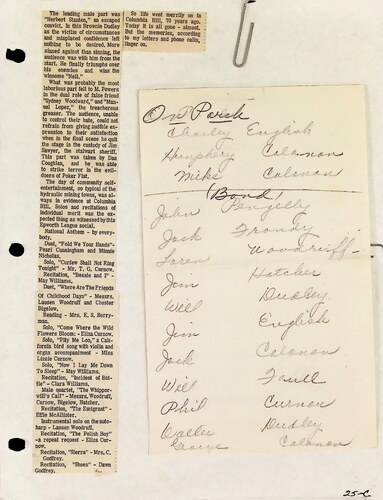 The leading male part was
"Herbert Standen," an escaped
convict. In this Brownie Dudley
as the victim of circumstances
and misplaced confidence left
nothing to be desired. More
sinned against than sinning, the
audience was with him from the
start. He finally triumphs over
his enemies and wins the
winsome "Nell."
What was probably the most
laborious part fell to M. Powers
in the dual role of false friend
"Sydney Woodward," and "Man-
uel Lopez," the treacherous
greaser. The audience, unable
to control their hate, could not
refrain from giving audible ex-
pression to their satisfaction
when in the final scene he quit
the stage in the custody of Jim
Sawyer, the stalwart sheriff.
This part was taken by Dan
Coughlan, and he was able
to strike terror in the evil-
doers of Poker Flat.
The day of community self-
entertainment, so typical of the
hydraulic mining towns, was al-
ways in evidence at Columbia
Hill. Solos and recitations of
individual merit was the ex-
pected thing as witnessed by this
Epworth League social.
National Anthem - by every-
body.
Duet, "Fold We Your Hands"-
Pearl Cunningham and Minnie
Nicholas.
Solo, "Curfew Shall Not Ring
Tonight" - Mr. T. G. Curnow.
Recitation, "Bessie and I" -
May Williams.
Duet, "Where Are The Friends
Of Childhood Days" - Messrs.
Lausen Woodruff and Chester
Bigelow.
Reading - Mrs. E. S. Berry-
man.
Solo, "Come Where the Wild
Flowers Bloom: - Eliza Curnow.
Solo, "Pity Me Loo," a Cali-
fornia bird song with violin and
organ accompaniment - Miss
Lizzie Curnow.
Solo, "Now I Lay Me Down
To Sleep" - May Williams.
Recitation, "Incident of Bat-
tle" - Clara Williams.
Male quartet, "The Whippor-
will's Call" - Messrs. Woodruff,
Curnow, Bigelow, Butcher.
Recitation, "The Emigrant" -
Effie McAllister.
Instrumental solo on the auto-
harp - Lausen Woodruff.
Recitation, "The Polish Boy"
- a repeat request - Eliza Cur-
now.
Recitation, "Sierra" - Mrs. C.
Godfrey.
Recitation, "Shoes" - Dawn
Godfrey.
So life went merrily on in
Columbia Hill, 70 years ago.
Today it is all gone - almost.
But the memories, according
to my letters and phone calls,
linger on.
On Porch
Charley English
Humphery Calanan
Mike Calanan
(Band)
John Pengelly
Jack
Loren Woodruff
Jim Hatcher
Will Dudley
Jim English
Jack Calanan
Will Faull
Phil Curnow
Walter Dudley
George Calanan
25-C